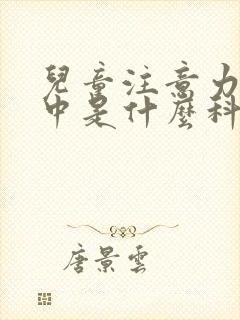 兒童注意力
中是什麼科
唐景雲